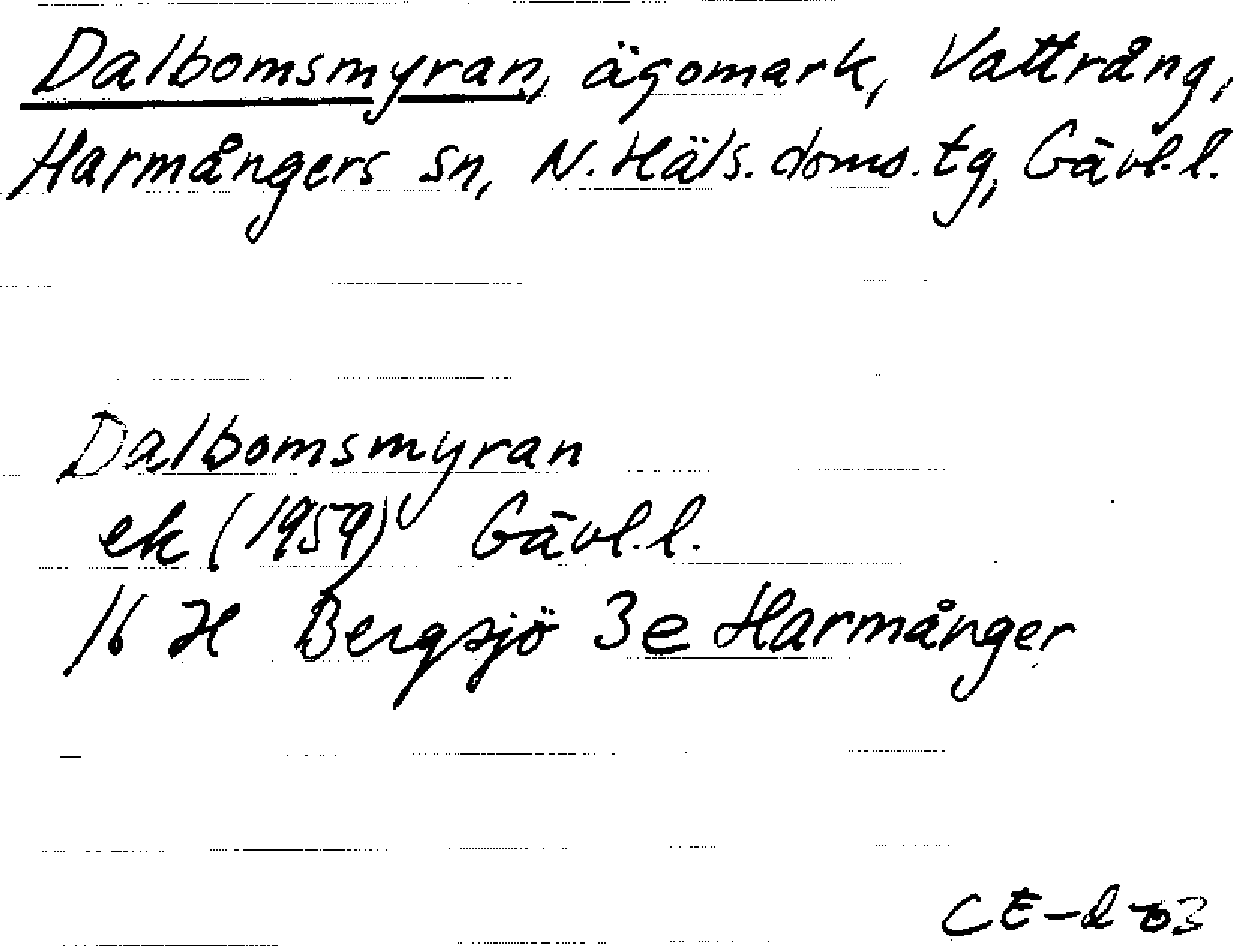 Dalbomsmyran, ägomark, Vattrång,
Harmångers sn, N. Häls. doms. tg, Gävl.l.
Dalbomsmyran
ek (1959) Gävl.l.
16 H Bergsjö 3e Harmånger